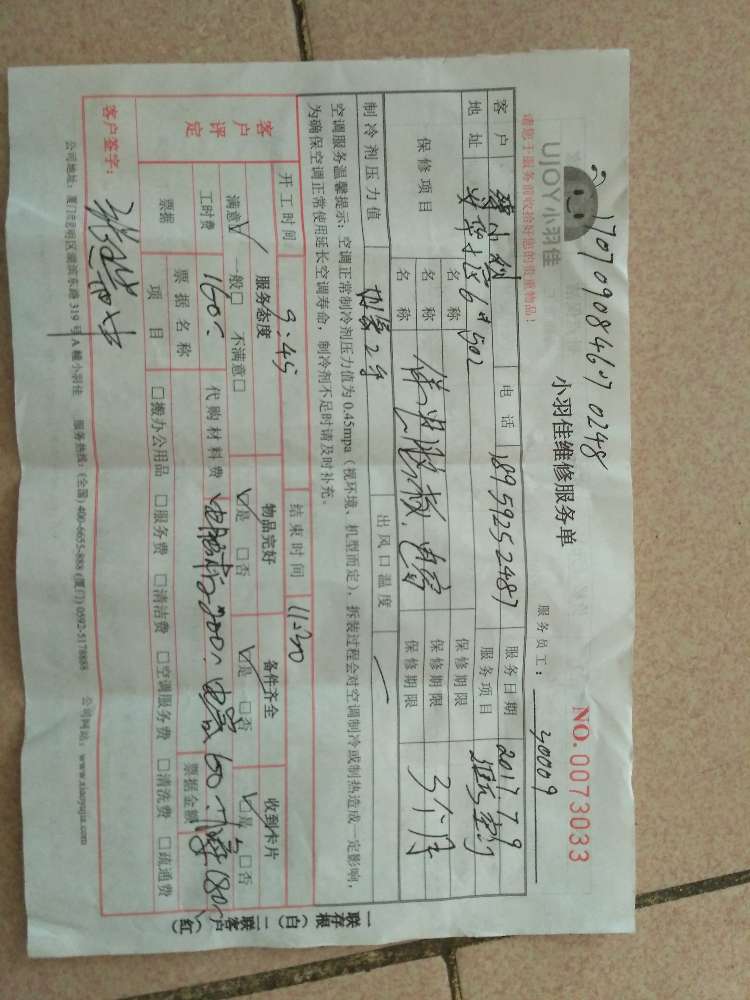 1707090846070248
UIOY小羽佳
小羽佳维修服务单
NO. 0073033
请您于服务前收拾好您的贵重物品！
服务员工： 30009
客户 电话 18959252487 服务日期 2017.7.9
地址 6# 502 服务项目
保修项目 名称 保修期限
名称 保修期限
名称 保修期限 3个月
制冷剂压力值 出风口温度 一
空调服务温馨提示：空调正常制冷剂压力值为 0.45mpa（视环境、机型而定），拆装过程会对空调制冷或制热造成一定影响，
为确保空调正常使用延长空调寿命，制冷剂不足时请及时补充。
开工时间 9:45 结束时间 11:30
客户评定 服务态度 物品完好 备件齐全 收到卡片
满意☑ 一般□ 不满意□ ☑是 □否 ☑是 □否 ☑是 □否
工时费 160 代购材料费 电脑板200 60
票据 票据名称 票据金额
项目 □搬办公用品 □服务费 □清洁费 □空调服务费 □清洗费 □疏通费
客户签字：
公司地址：厦门思明区湖滨东路 319 号 A 幢小羽佳 服务热线：(全国) 400-6655-888 (厦门) 0592-5178888 公司网站：www.xiaoyujia.com
一联存根（白） 二联客户（红）